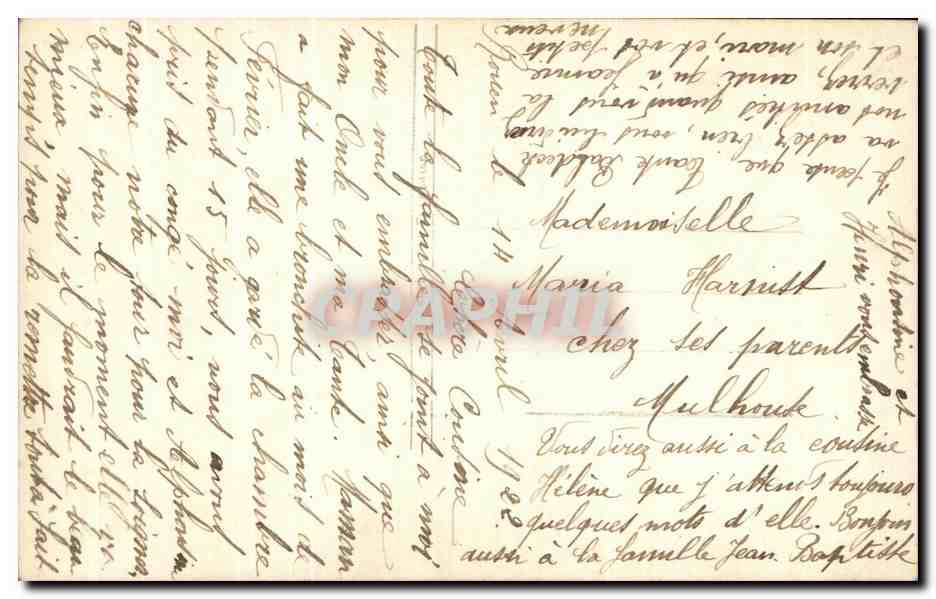 Rouen le 14 Avril 1922
Chère Cousine
Toute la famille se joint à moi
pour vous embrasser, ainsi que
mon Oncle et ma Tante. Maman
a fait une bronchite au mois de
Février, elle a gardé la chambre
pendant 15 jours, nous avons
pris du congé moi et Alphonsine
chacune notre jour pour la soigner,
Enfin pour le moment elle va
mieux mais il faudrait le beau
temps pour la remettre tout à fait
Je pense que tante
va assez bien, vous lui
nos amitiés quand vous la
verrez, ainsi qu'à Jeanne
et son mari, et vos petits
neveux
Alphonsine et
Henri vous embrasse
Mademoiselle
Maria Harnist
chez ses parents
Mulhouse
Vous direz aussi à la cousine
Hélène que j'attends toujours
quelques mots d'elle. Bonjour
aussi à la famille Jean Baptiste
CPAPHIL